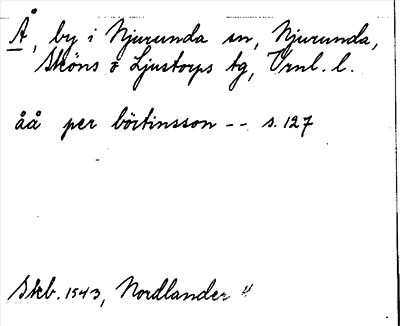 Å, by i Njurunda sn, Njurunda,
Sköns o Ljustorps tg, Vrnl. l.
åå per börtinsson -- s. 127
Skb. 1543, Nordlander